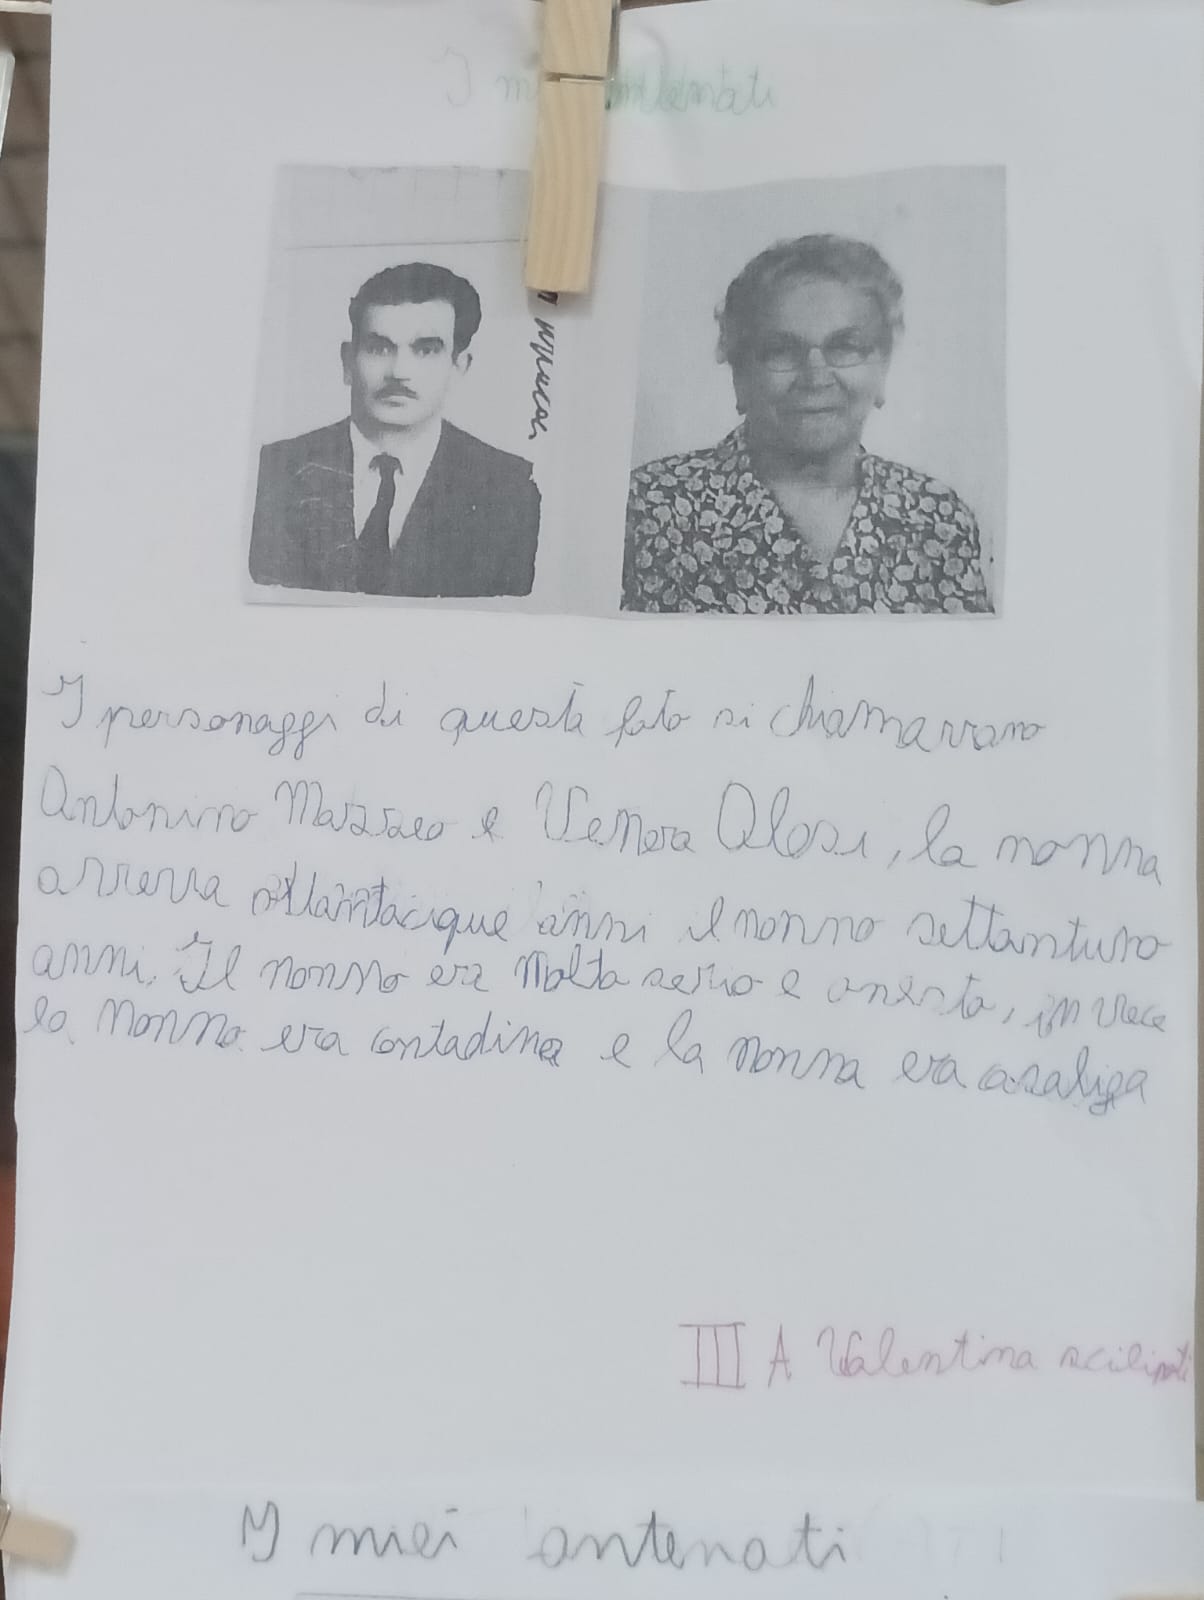 I miei antenati
I personaggi di questa foto si chiamavano
Antonino Mazzeo e Venera Alosi, la nonna
aveva ottantacique anni il nonno settantuno
anni. Il nonno era molto serio e onesto, in vece
la nonno era contadina e la nonna era casaliga
III A Valentina scilipoti
I miei antenati